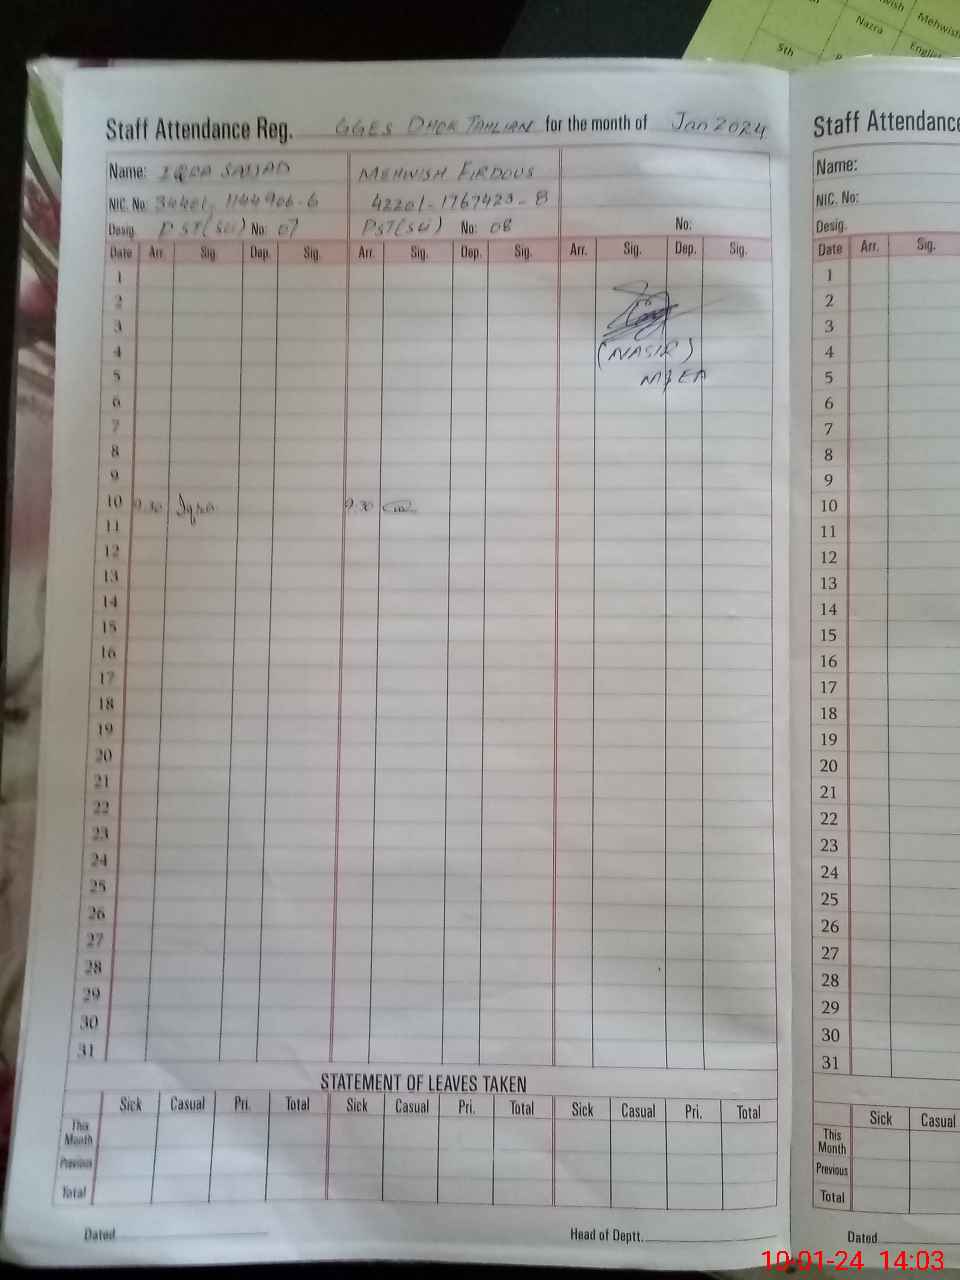 wish
Mehwish
Nazra
English
5th
Staff Attendance Reg. GGES DHOK TAHLIAN for the month of Jan 2024
Name: IQRA SAJJAD MEHWISH FIRDOUS
NIC. No: 34401-1144906-6 42201-1767423-8
Desig. PST(Sci) No: 07 PST(Sci) No: 08 No:
Date Arr. Sig. Dep. Sig. Arr. Sig. Dep. Sig. Arr. Sig. Dep. Sig.
1
2
3
4 (NASIR)
5 MEA
6
7
8
9
10 9:30 Iqra 9:30
11
12
13
14
15
16
17
18
19
20
21
22
23
24
25
26
27
28
29
30
31
STATEMENT OF LEAVES TAKEN
Sick Casual Pri. Total Sick Casual Pri. Total Sick Casual Pri. Total
This Month
Previous
Total
Dated Head of Deptt.
Staff Attendance
Name:
NIC. No:
Desig.
Date Arr. Sig.
1
2
3
4
5
6
7
8
9
10
11
12
13
14
15
16
17
18
19
20
21
22
23
24
25
26
27
28
29
30
31
Sick Casual
This Month
Previous
Total
Dated
10-01-24 14:03